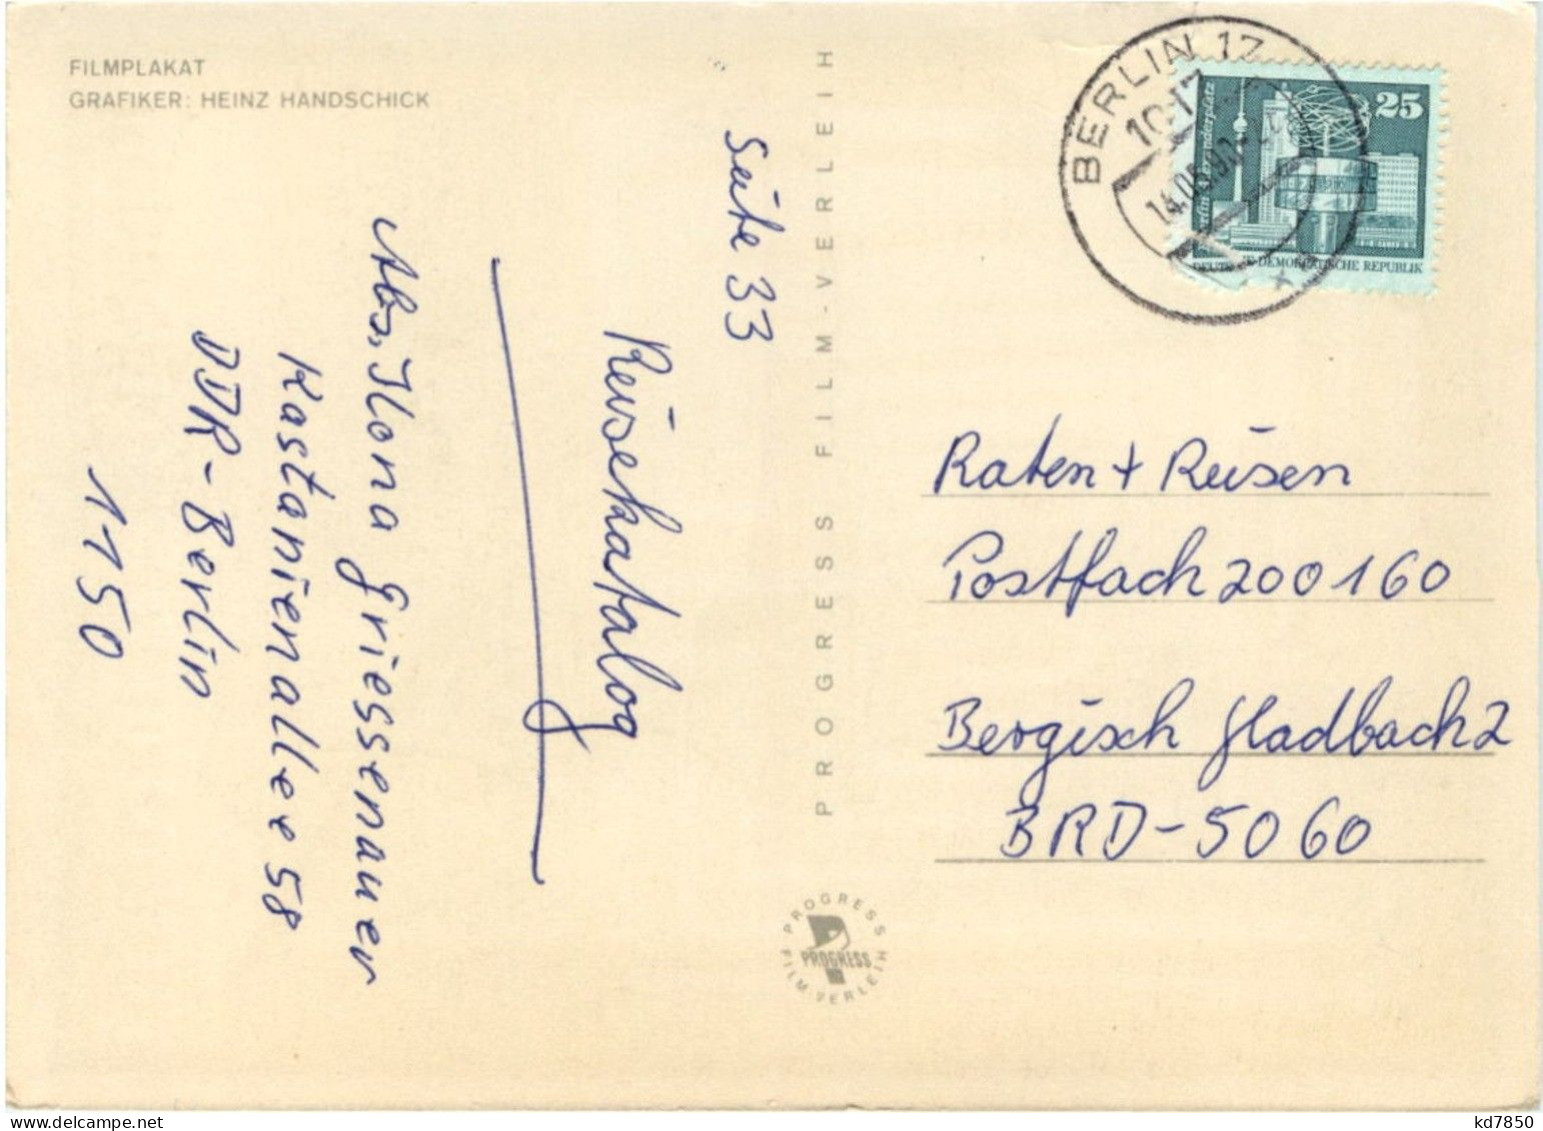 FILMPLAKAT
GRAFIKER: HEINZ HANDSCHICK
Seite 33
Reisekatalog
Abs. Ilona Griessenauer
Kastanienallee 58
DDR-Berlin
1150
PROGRESS FILM-VERLEIH
PROGRESS FILM-VERLEIH
PROGRESS
BERLIN 17
14.05.90
25
DEUTSCHE DEMOKRATISCHE REPUBLIK
Raten + Reisen
Postfach 200160
Bergisch Gladbach 2
BRD-5060
kd7850